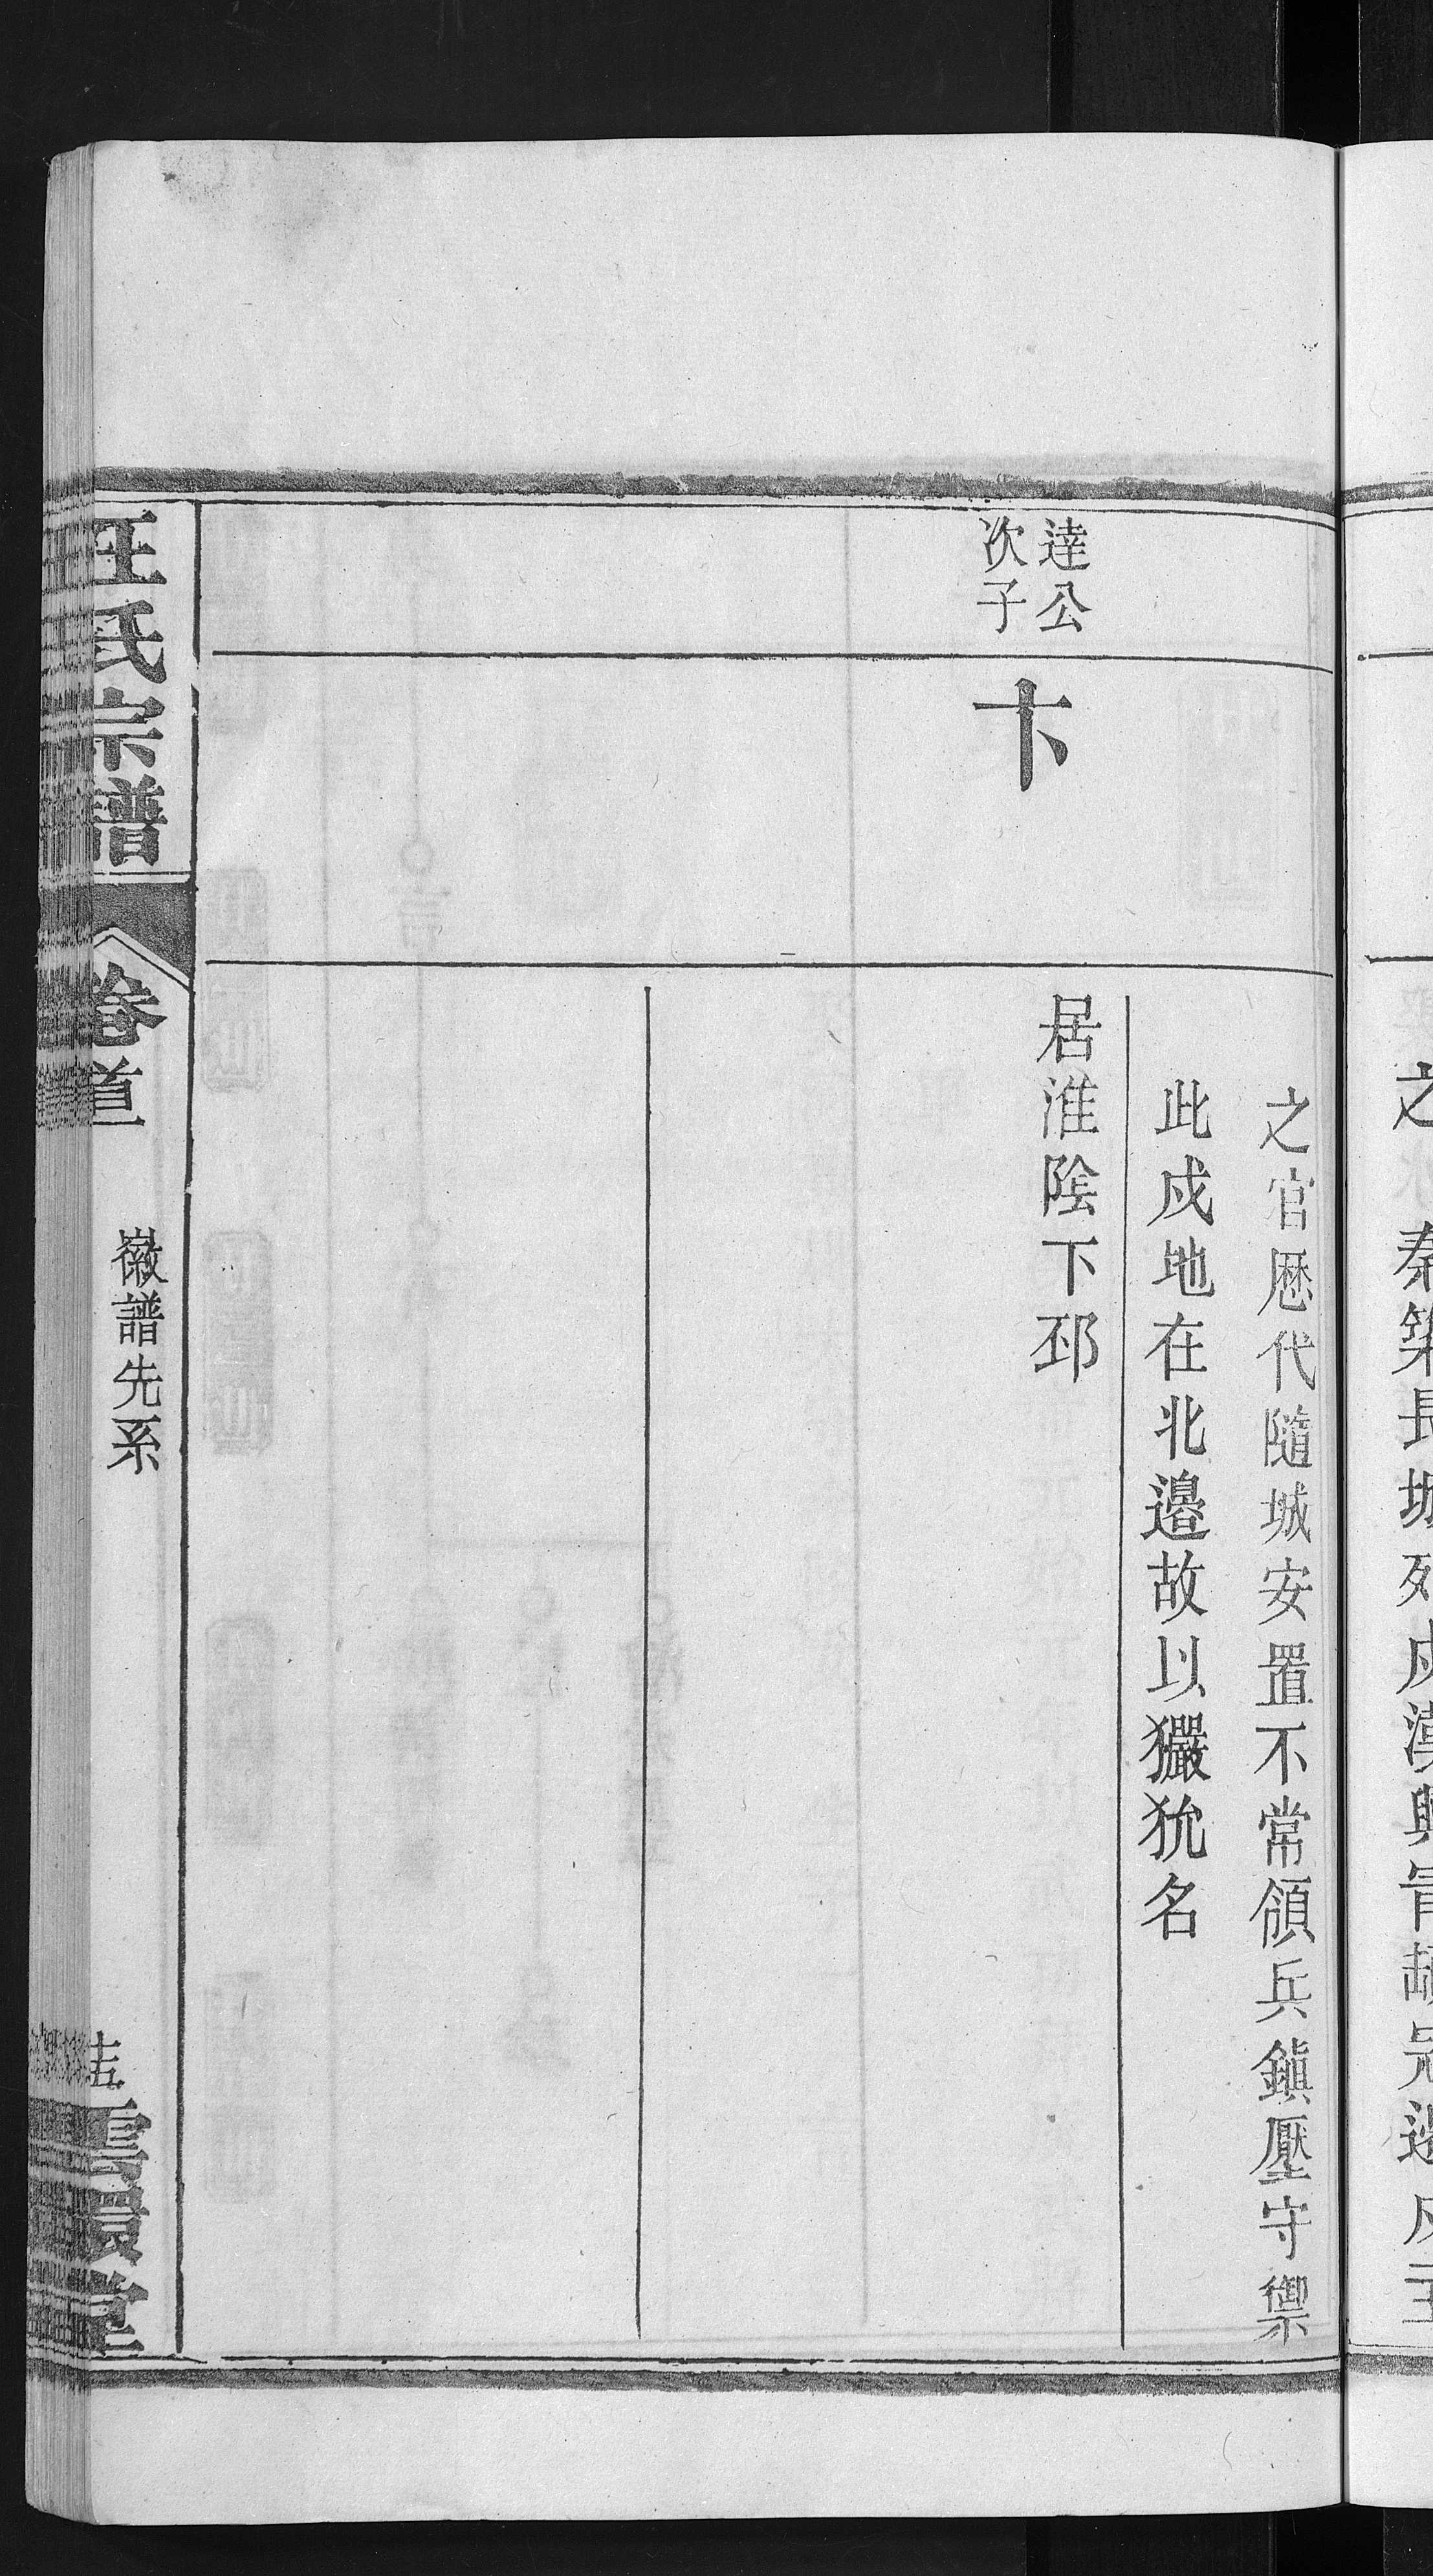 之 秦築長城死戍漢興
之官厯代隨城安置不常領兵鎮壓守禦
此戍地在北邊故以玁狁名
達公
次子
卞
居淮陰下邳
汪氏宗譜
卷首
徽譜先系